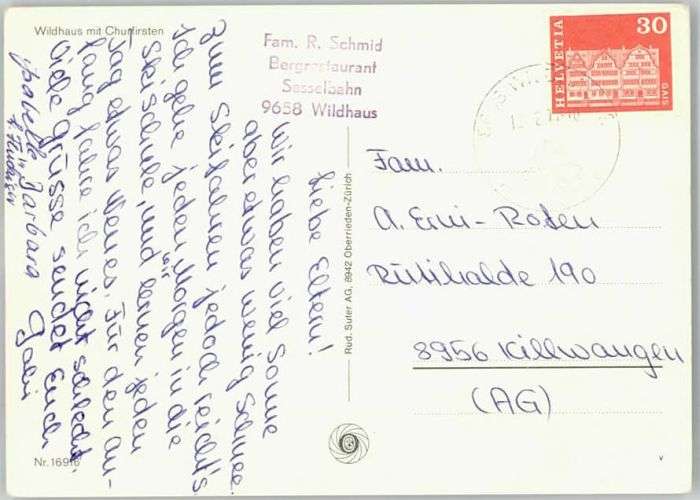 Wildhaus mit Churfirsten
Fam. R. Schmid
Bergrestaurant
Sesselbahn
9658 Wildhaus
HELVETIA
30
GAIS
Liebe Eltern!
Wir haben viel Sonne
aber etwas wenig Schnee.
Zum Skifahren jedoch reicht's
Ich gehe jeden Morgen in die
Skischule, und wir lernen jeden
Tag etwas Neues. Für den An-
fang fahre ich nicht schlecht.
Viele Grüsse sendet Euch
Gabi
Barbara
Fam.
A. Erni-Rosen
Rütihalde 190
8956 Killwangen
(AG)
Rud. Suter AG, 8942 Oberrieden-Zürich
Nr. 16916